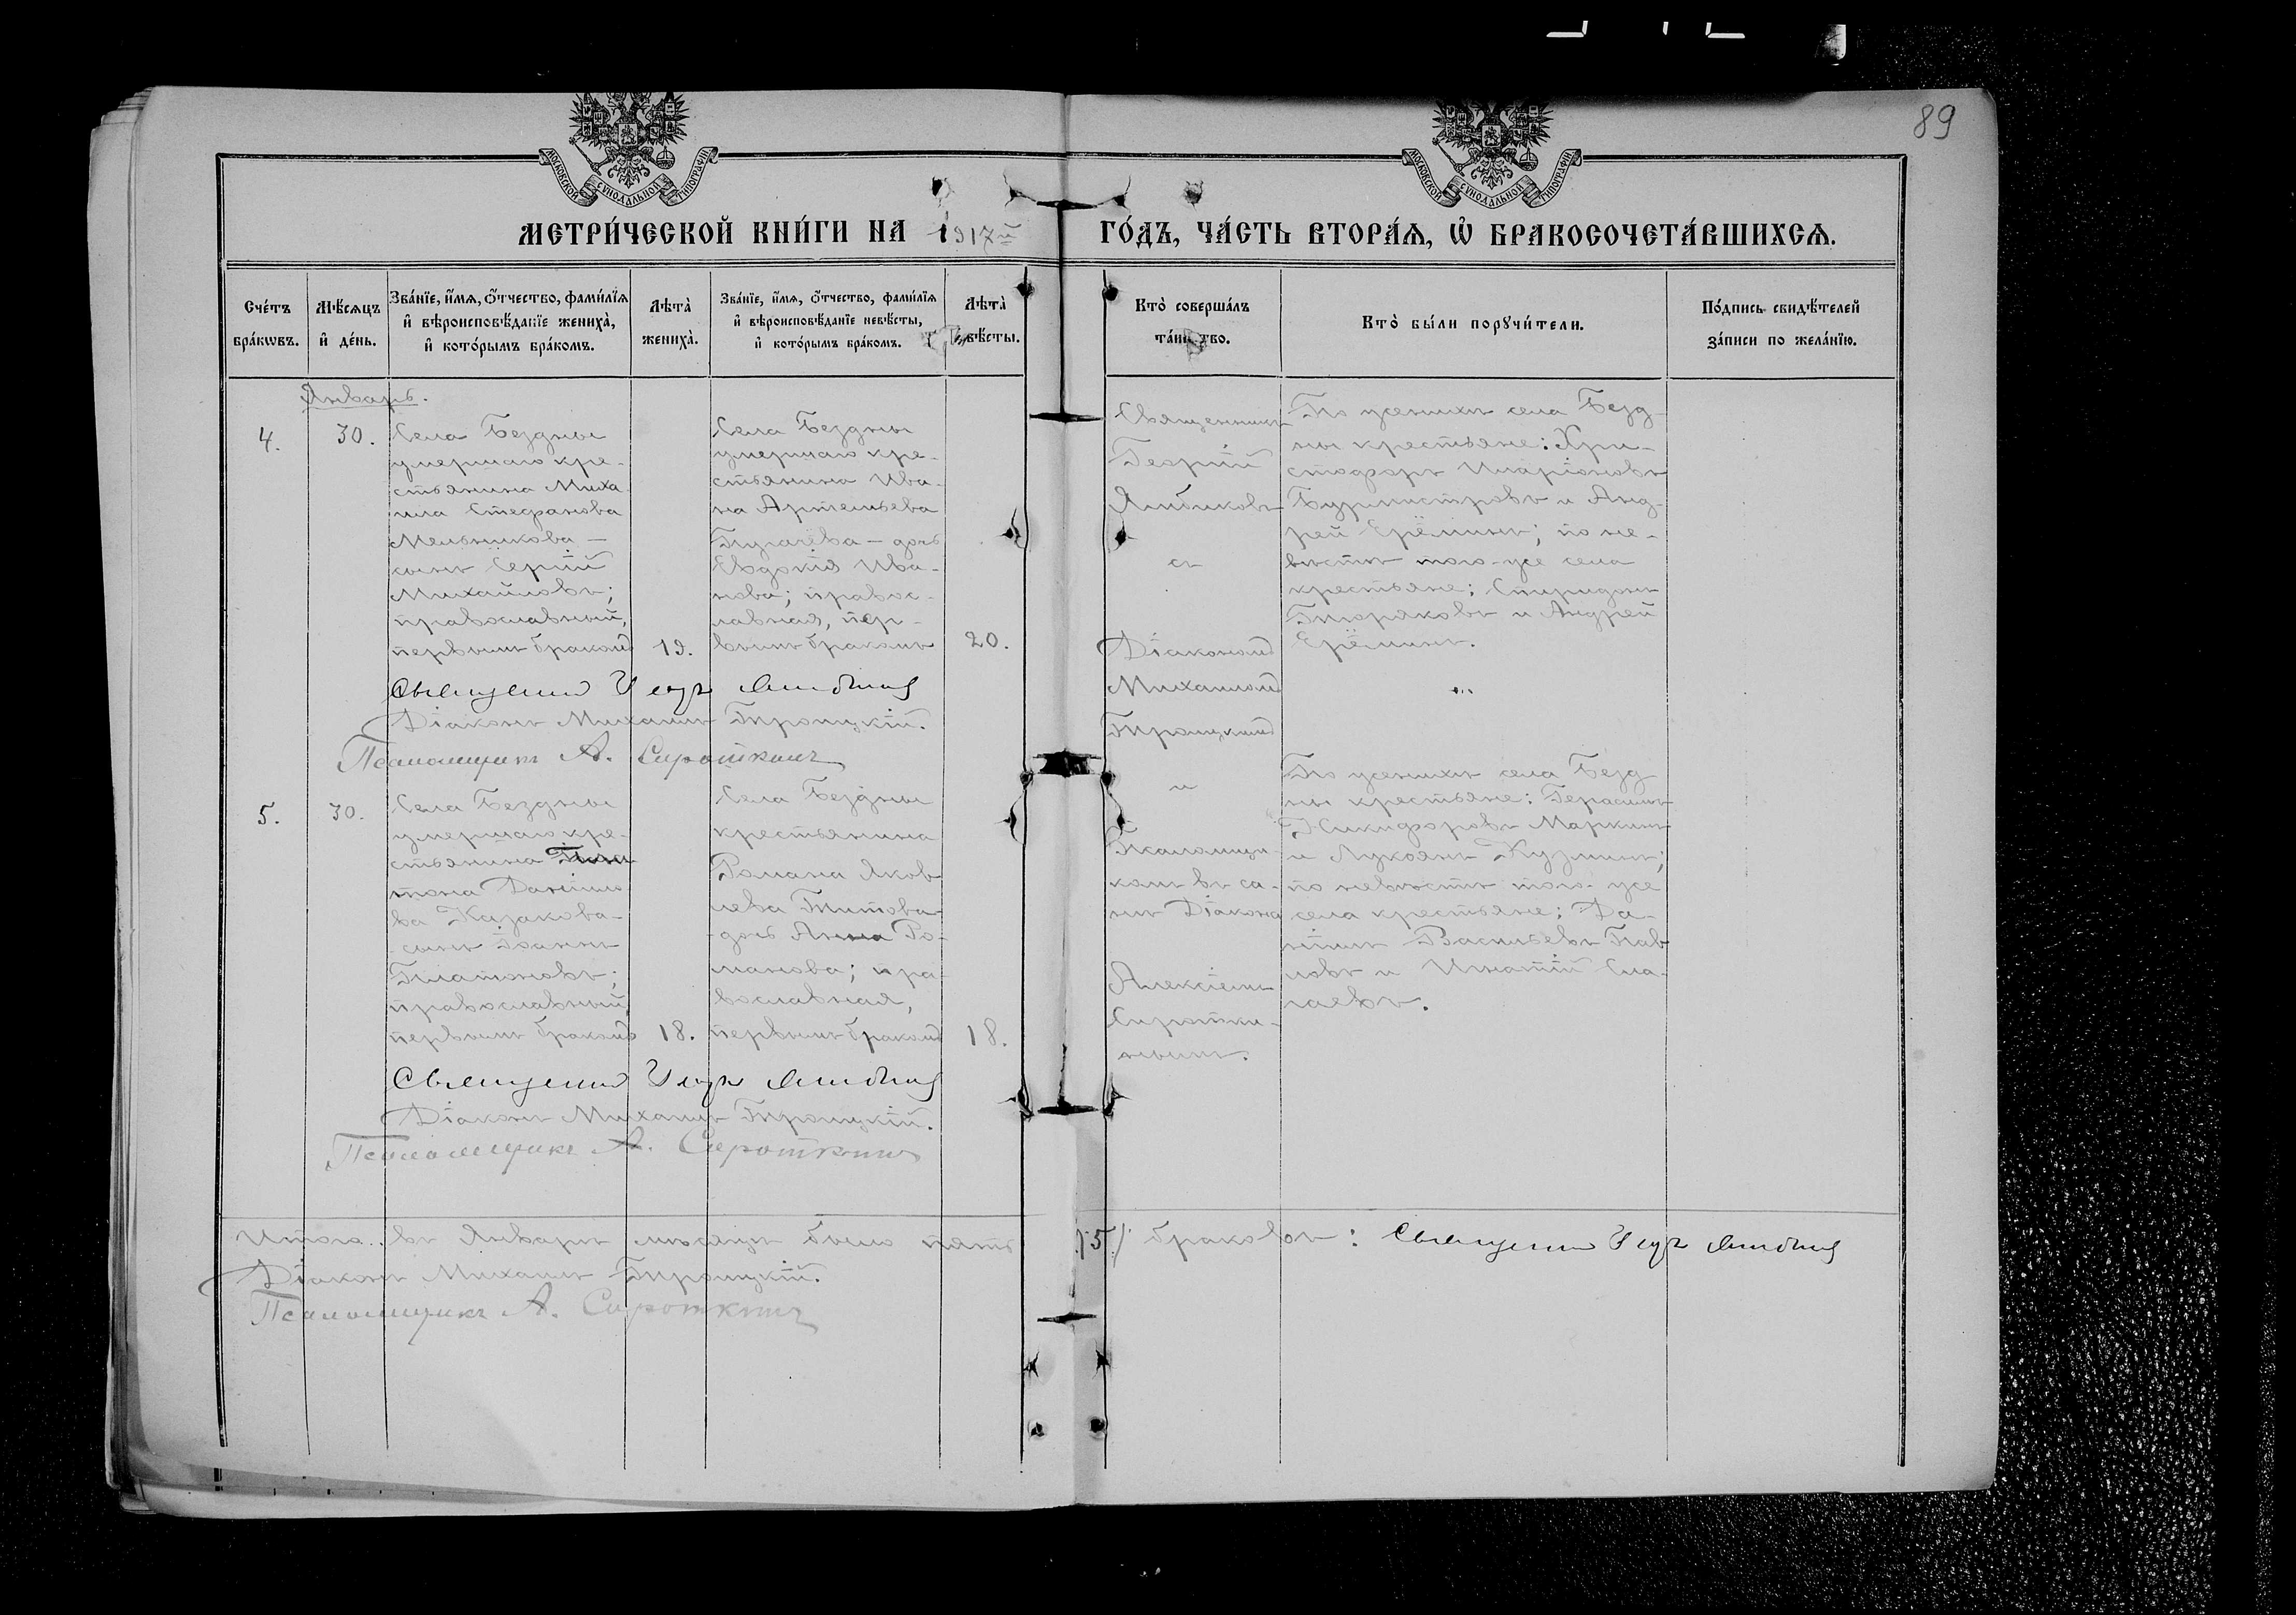 89
МОСКОВСКОЙ СѴНОДАЛЬНОЙ ТИПОГРАФІИ
МОСКОВСКОЙ СѴНОДАЛЬНОЙ ТИПОГРАФІИ
МЕТРИ́ЧЕСКОЙ КНИ́ГИ НА 1917й ГО́ДЪ, ЧА́СТЬ ВТОРА́Ѧ, Ѽ БРАКОСОЧЕТА́ВШИХСѦ.
Сче́тъ бра́кѡвъ.
Мѣ́сѧцъ и҆ де́нь.
Зва́нїе, и҆́мѧ, ѻ҆́тчество, фами́лїѧ
и҆ вѣроисповѣ́данїе жениха̀,
и҆ кото́рымъ бра́комъ.
Лѣта̀
жениха̀.
Зва́нїе, и҆́мѧ, ѻ҆́тчество, фами́лїѧ
и҆ вѣроисповѣ́данїе невѣ́сты,
и҆ кото́рымъ бра́комъ.
Лѣта̀
невѣ́сты.
Кто̀ соверша́лъ
та́инство.
Кто̀ бы́ли порꙋчи́тели.
По́дпись свидѣ́телей
за́писи по жела́нїю.
Январь.
4.
30.
Села Бездны
умершаго кре-
стьянина Миха-
ила Стефанова
Мельникова —
сынъ Сергій
Михайловъ;
православный,
первымъ бракомъ
19.
Села Бездны
умершаго кре-
стьянина Ива-
на Артемьева
Пугачёва — дочь
Евдокія Ива-
нова; правос-
лавная, пер-
вымъ бракомъ
20.
Священникъ
Георгій
Ямбиковъ
съ
Діакономъ
Михаиломъ
Троицкимъ
и
Псаломщи-
комъ въ са-
нѣ Діакона
Алексіемъ
Сироткі-
нымъ.
По женихѣ села Безд-
ны крестьяне: Хри-
стофоръ Иларіоновъ
Бурмистровъ и Анд-
рей Ерёминъ; по не-
вѣстѣ того-же села
крестьяне: Спиридонъ
Тюряковъ и Андрей
Ерёминъ.
Священникъ Георг. Ямбиков
Діаконъ Михаилъ Троицкій.
Псаломщикъ А. Сироткинъ
5.
30.
Села Бездны
умершаго кре-
стьянина Пла-
тона Даніило-
ва Казакова-
сынъ Іоаннъ
Платоновъ;
православный,
первымъ бракомъ
18.
Села Бездны
крестьянина
Романа Яков-
лева Титова-
дочь Анна Ро-
манова; пра-
вославная,
первымъ бракомъ
18.
По женихѣ села Безд-
ны крестьяне: Герасимъ
Никифоровъ Маркинъ
и Лукоянъ Кузминъ;
по невѣстѣ того-же
села крестьяне: Да-
ніилъ Васильевъ Пав-
ловъ и Игнатій
Священникъ Георг. Ямбиков
Діаконъ Михаилъ Троицкій.
Псаломщикъ А. Сироткинъ
Итого въ Январѣ мѣсяцѣ было пять /5/ браковъ: Священникъ Георг. Ямбиков
Діаконъ Михаилъ Троицкій.
Псаломщикъ А. Сироткинъ